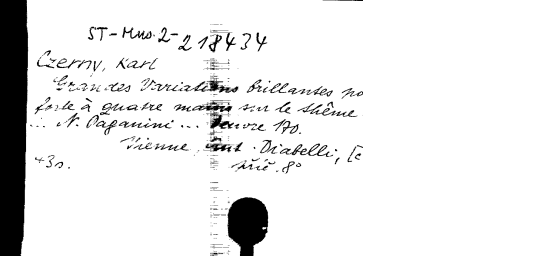 ST-Mus.2-218434
Czerny, Karl
Grandes Variations brillantes po
forte à quatre mains sur le thême
... N. Paganini ... Oeuvre 170.
Vienne, Ant. Diabelli, [c
43s. příč. 8°